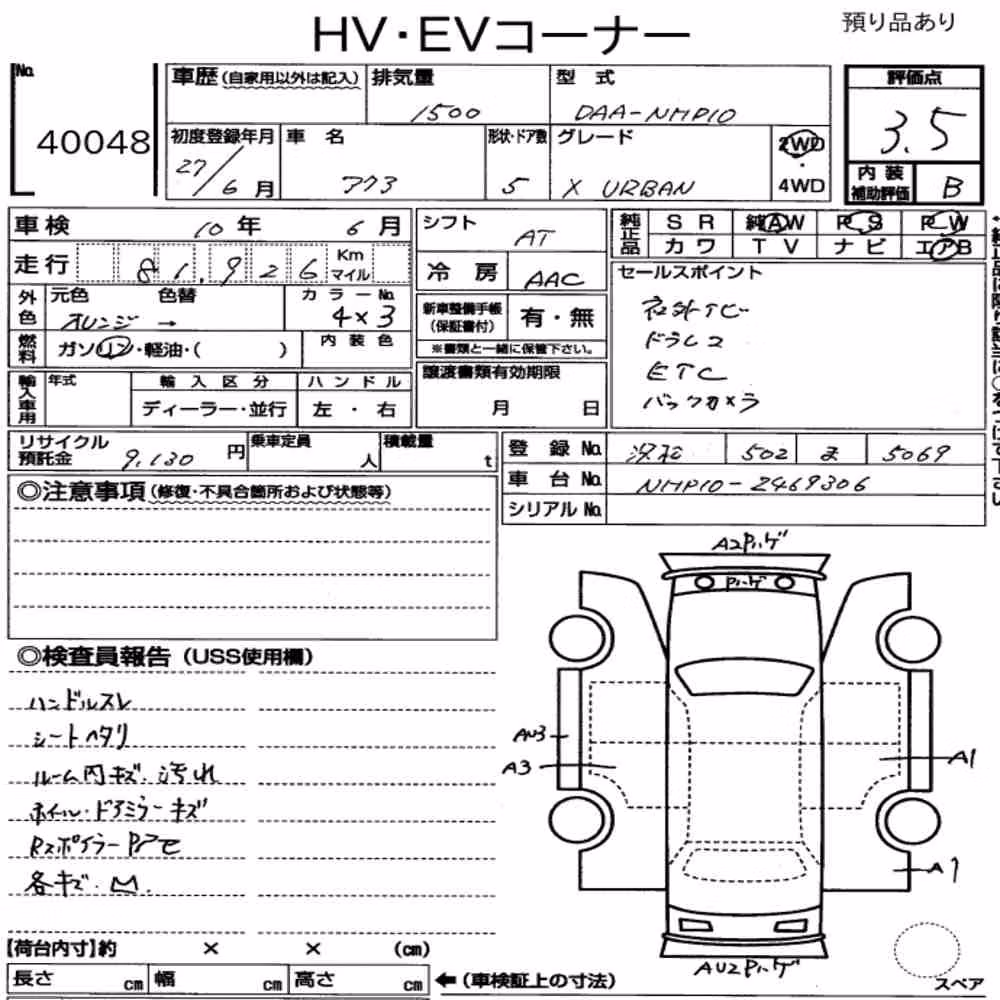 HV・EVコーナー
預り品あり
No.
40048
車歴 (自家用以外は記入)
排気量
1500
型 式
DAA-NHP10
評価点
3.5
初度登録年月
27/6月
車 名
アクア
形状・ドア数
5
グレード
X URBAN
2WD
・
4WD
内装補助評価
B
車検
10年 6月
シフト
AT
純正品
S R
純AW
P S
P W
カワ
T V
ナビ
エアB
走行
81,926
Km
マイル
冷 房
AAC
セールスポイント
社外TV
ドラレコ
ETC
バックカメラ
外色
元色
色替
カラーNo.
オレンジ →
4×3
新車整備手帳
(保証書付)
有・無
※書類と一緒に保管下さい。
燃料
ガソリン・軽油・( )
内装色
輸入車用
年式
輸入区分
ハンドル
ディーラー・並行
左・右
譲渡書類有効期限
月 日
リサイクル
預託金
9,130円
乗車定員
人
積載量
t
登 録 No.
502
ま
5069
車 台 No.
NHP10-2469306
シリアルNo.
◎注意事項(修復・不具合箇所および状態等)
A2Pハゲ
Pハゲ
◎検査員報告 (USS使用欄)
ハンドルスレ
シートヘタリ
ルーム内キズ、汚れ
ホイール・ドアミラーキズ
Rスポイラー
各キズ・凹.
AU3
A3
A1
A1
AU2Pハゲ
スペア
【荷台内寸】約 × × (cm)
長さ cm
幅 cm
高さ cm
←(車検証上の寸法)